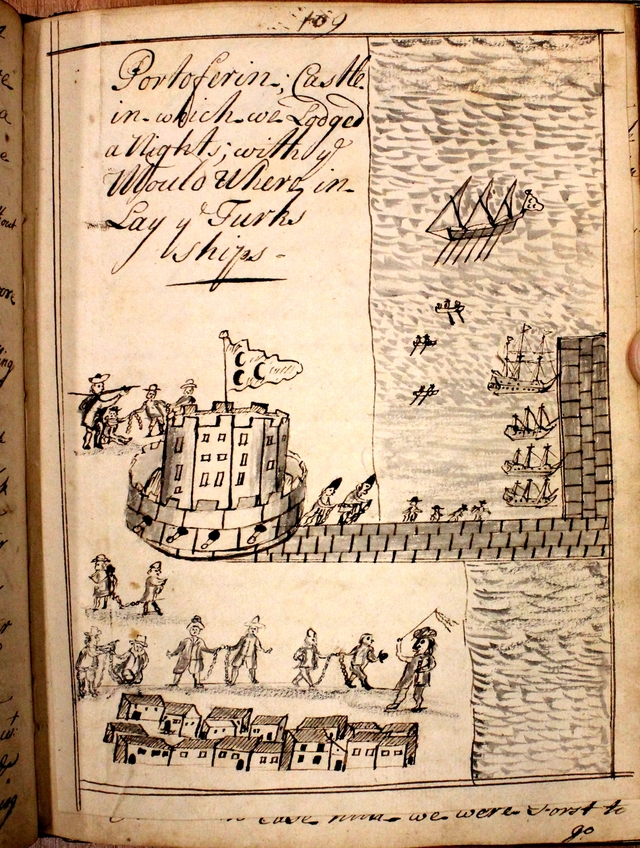 109
Portoferin; Castle
in-which-we Lodged
a Nights; with ye
Mould Where in-
Lay ye Turks
ships-
we were Forst to
go